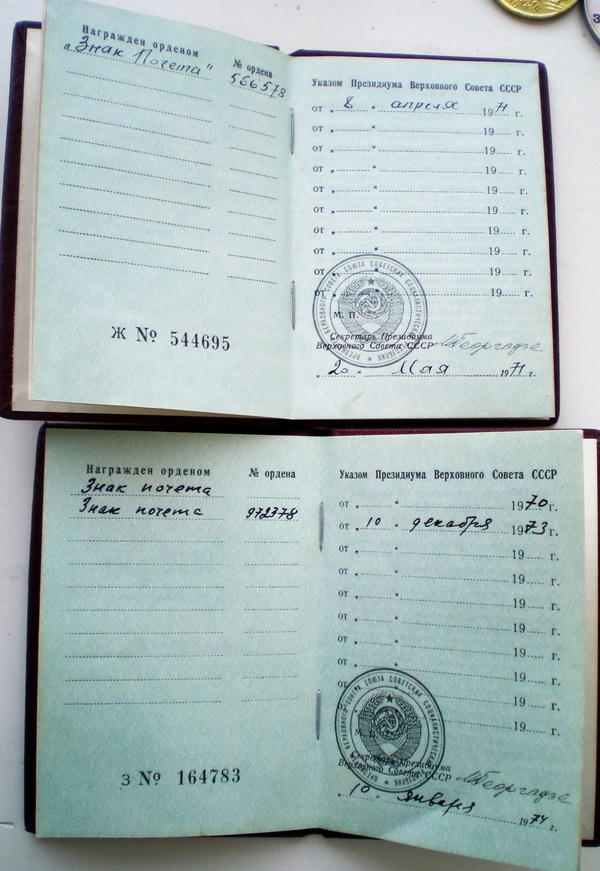 Награжден орденом
№ ордена
„Знак Почета"
566578
Ж № 544695
Указом Президиума Верховного Совета СССР
от „ 8 " апреля 1971 г.
от „ " 19 г.
от „ " 19 г.
от „ " 19 г.
от „ " 19 г.
от „ " 19 г.
от „ " 19 г.
от „ " 19 г.
от „ " 19 г.
от „ " 19 г.
М. П.
Секретарь Президиума
Верховного Совета СССР
МГеоргадзе
„ 20 " Мая 1971 г.
Награжден орденом № ордена
Знак почета
Знак почета 972378
З № 164783
Указом Президиума Верховного Совета СССР
от „ " 1970 г.
от „ 10 " декабря 1973 г.
от „ " 19 г.
от „ " 19 г.
от „ " 19 г.
от „ " 19 г.
от „ " 19 г.
от „ " 19 г.
от „ " 19 г.
от „ " 19 г.
М. П.
Секретарь Президиума
Верховного Совета СССР
МГеоргадзе
„ 10 " января 1974 г.